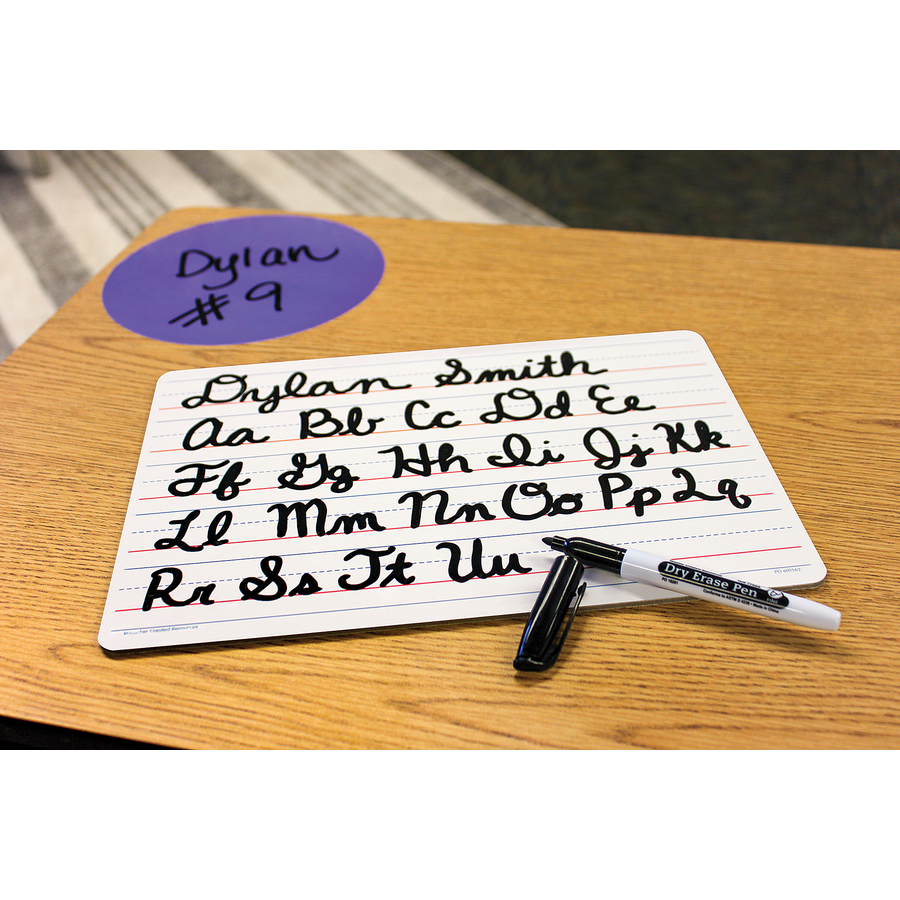 Dylan
#9
Dylan Smith
Aa Bb Cc Dd Ee
Ff Gg Hh Ii Jj Kk
Ll Mm Nn Oo Pp Qq
Rr Ss Tt Uu
Dry Erase Pen
Conforms to ASTM D-4236 • Made in China
Teacher Created Resources